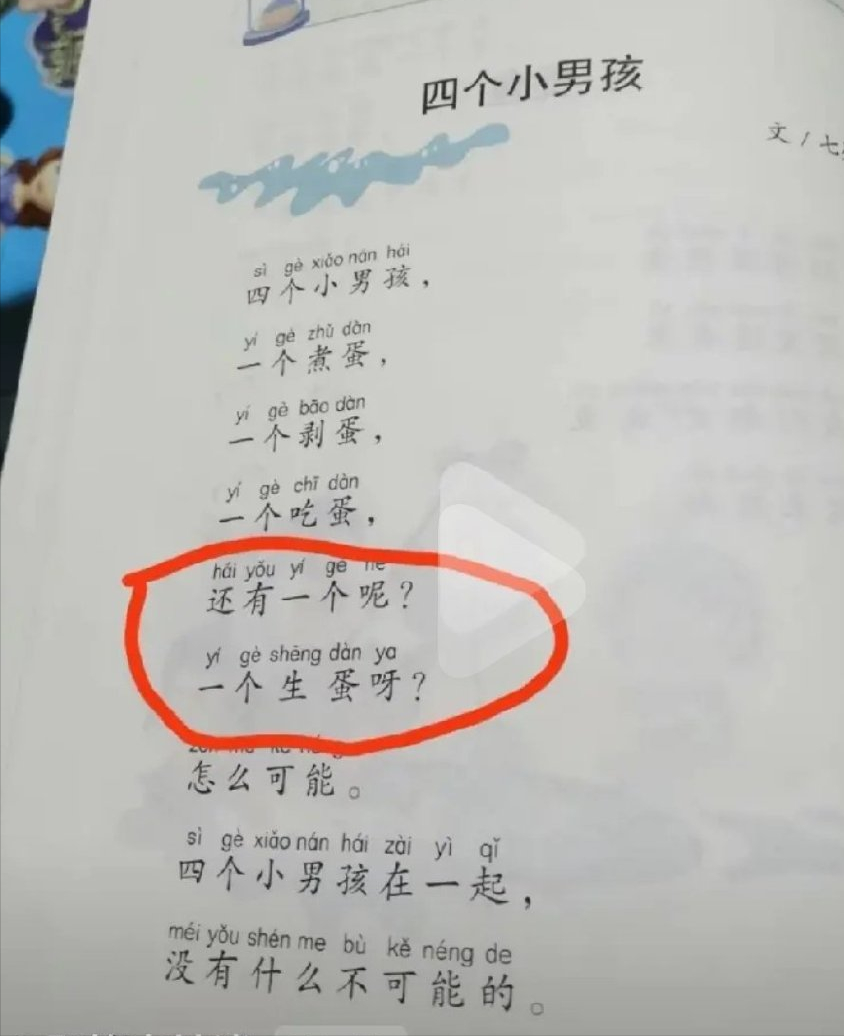 四个小男孩
文/七
sì gè xiǎo nán hái
四个小男孩，
yí gè zhǔ dàn
一个煮蛋，
yí gè bāo dàn
一个剥蛋，
yí gè chī dàn
一个吃蛋，
hái yǒu yí gè ne
还有一个呢？
yí gè shēng dàn ya
一个生蛋呀？
怎么可能。
sì gè xiǎo nán hái zài yì qǐ
四个小男孩在一起，
méi yǒu shén me bù kě néng de
没有什么不可能的。